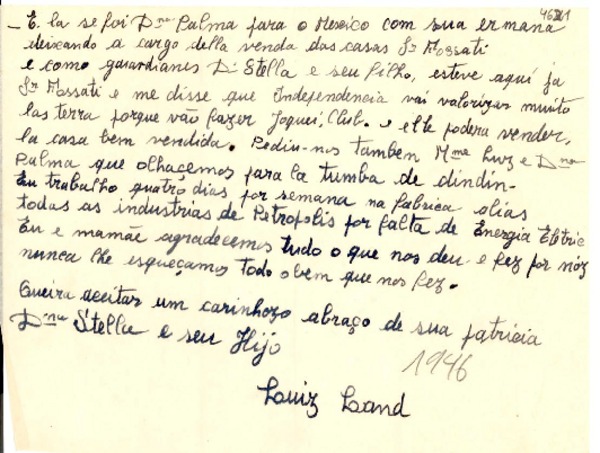 _ E. la se foi Dna Palma para o Mexico com sua ermana
deixando a cargo della venda das casas Sr Mossati
e como guardianes D. Stella e seu filho, esteve aqui ja
Sr Mossati e me disse que Independencia vai valorizar muito
las terra porque vão fazer Joquei, Club. e elle podera vender,
la casa bem vendida. Pediu-nos tambem Mme Luz e Dna
Palma que olhaçemos para la tumba de dindin-
Eu trabalho quatro dias por semana na fabrica alias
todas as industrias de Petropolis por falta de Energia Eletric
Eu e mamãe agradecemos tudo o que nos deu e fez por nóz
nunca lhe esqueçamos todo o bem que nos fez.
Queira aceitar um carinhozo abraço de sua patricia
Dna Stella e seu Hijo
1946
Luiz Land